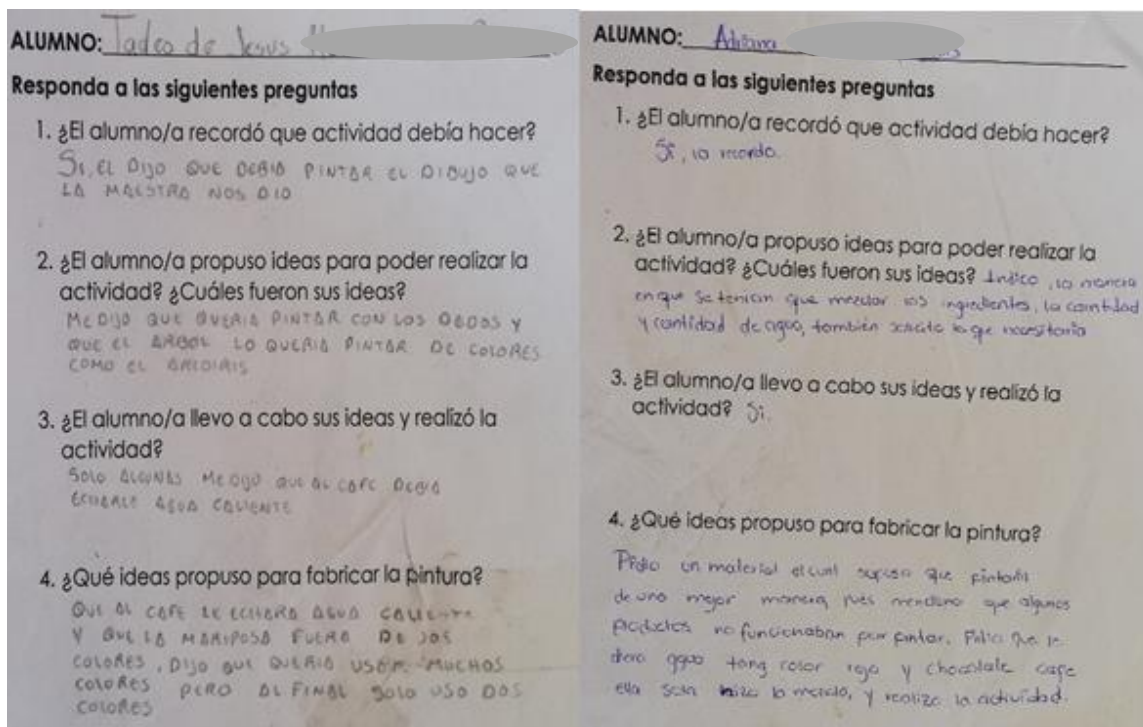 ALUMNO: Tadeo de Jesus
Responda a las siguientes preguntas
1. ¿El alumno/a recordó que actividad debía hacer?
SI, EL DIJO QUE DEBIA PINTAR EL DIBUJO QUE
LA MAESTRA NOS DIO
2. ¿El alumno/a propuso ideas para poder realizar la
actividad? ¿Cuáles fueron sus ideas?
ME DIJO QUE QUERIA PINTAR CON LOS DEDOS Y
QUE EL ARBOL LO QUERIA PINTAR DE COLORES
COMO EL
3. ¿El alumno/a llevo a cabo sus ideas y realizó la
actividad?
SOLO ALGUNAS ME DIJO QUE AL CAFE DEBIA
ECHARLE AGUA CALIENTE
4. ¿Qué ideas propuso para fabricar la pintura?
QUE AL CAFE LE ECHARA AGUA CALIENTE
Y QUE LA MARIPOSA FUERA DE DOS
COLORES, DIJO QUE QUERIA USAR MUCHOS
COLORES PERO AL FINAL SOLO USO DOS
COLORES
ALUMNO: Adriana
Responda a las siguientes preguntas
1. ¿El alumno/a recordó que actividad debía hacer?
Si, lo recordo.
2. ¿El alumno/a propuso ideas para poder realizar la
actividad? ¿Cuáles fueron sus ideas? Indico, la manera
en que se tenian que mezclar los ingredientes, la cantidad
y cantidad de agua, también lo que necesitaria
3. ¿El alumno/a llevo a cabo sus ideas y realizó la
actividad? Si.
4. ¿Qué ideas propuso para fabricar la pintura?
Pidio un material el cual que pintaria
de una mejor manera, pues menciono que algunos
productos no funcionaban para pintar. Pidio que le
diera agua tang color rojo y chocolate cafe
ella sola hizo la mezcla, y realizo la actividad.